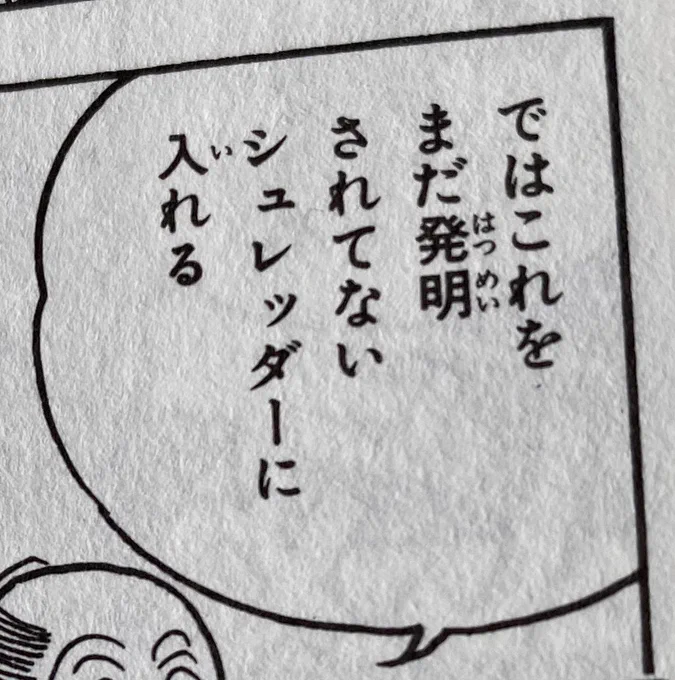 ではこれを
まだ発明
されてない
シュレッダーに
入れる